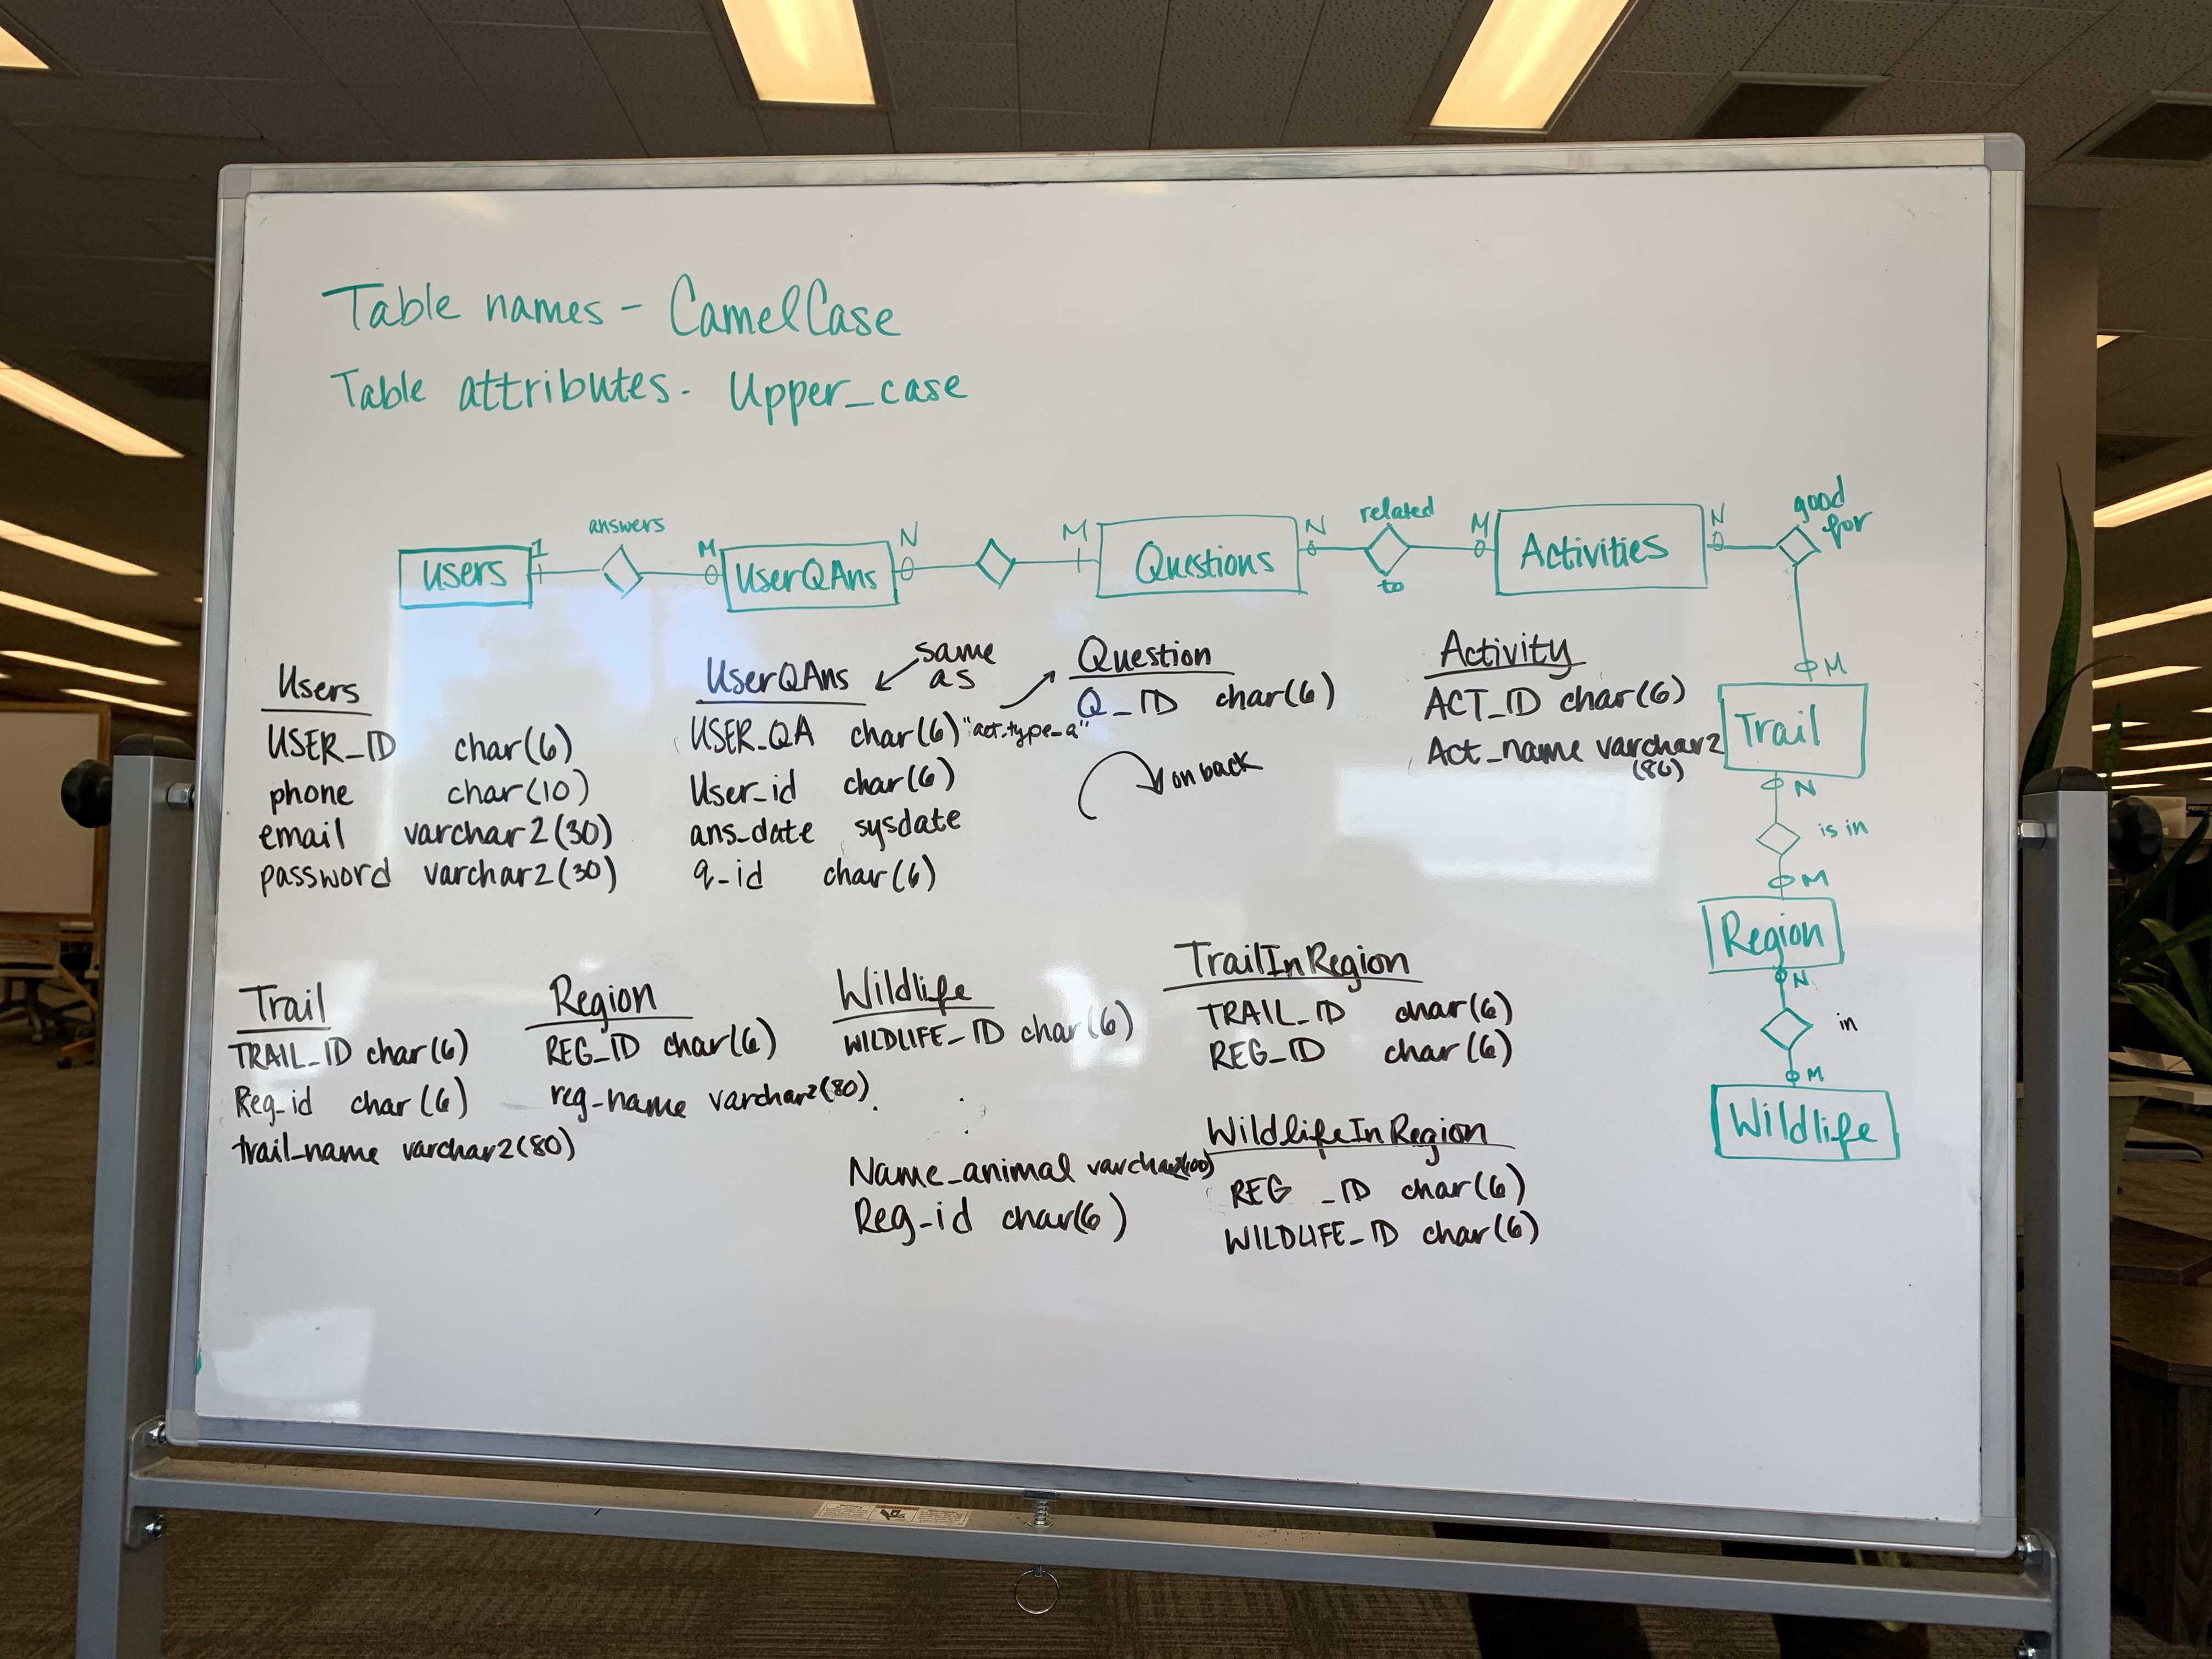 Table names - CamelCase
Table attributes - Upper_case
answers
related
to
good
for
1
M
N
M
N
M
N
Users
UserQAns
Questions
Activities
M
Trail
N
is in
M
Region
N
in
M
Wildlife
Users
USER_ID char(6)
phone char(10)
email varchar2(30)
password varchar2(30)
UserQAns
same
as
USER_QA char(6) "act.type_a"
User_id char(6)
ans_date sysdate
q_id char(6)
Question
Q_ID char(6)
on back
Activity
ACT_ID char(6)
Act_name varchar2
(80)
Trail
TRAIL_ID char(6)
Reg_id char(6)
trail_name varchar2(80)
Region
REG_ID char(6)
reg_name varchar2(80)
Wildlife
WILDLIFE_ID char(6)
Name_animal
Reg_id char(6)
TrailInRegion
TRAIL_ID char(6)
REG_ID char(6)
WildlifeInRegion
REG_ID char(6)
WILDLIFE_ID char(6)